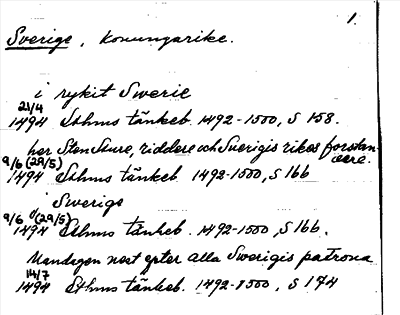 1.
Sverige, konungarike.
i rykit Swerie
21/4
1494 Sthms tänkeb. 1492-1500, S 158.
her Sten Sture, riddere och Sverigis rikes forstan
vere.
9/6 (29/5)
1494 Sthms tänkeb. 1492-1500, S 166
i Swerige
9/6 (29/5)
1494 Sthms tänkeb. 1492-1500, S 166.
Mandagen nest epter alla Swerigis patrona
14/7
1494 Sthms tänkeb. 1492-1500, S 174